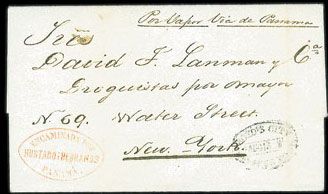 Por Vapor Via de Panama
Srs
David F. Lanman y Ca
Droguistas por mayor
N. 69. Water Street.
New York.
ENCAMINADA POR
HURTADO HERMANOS
PANAMÁ
CITY